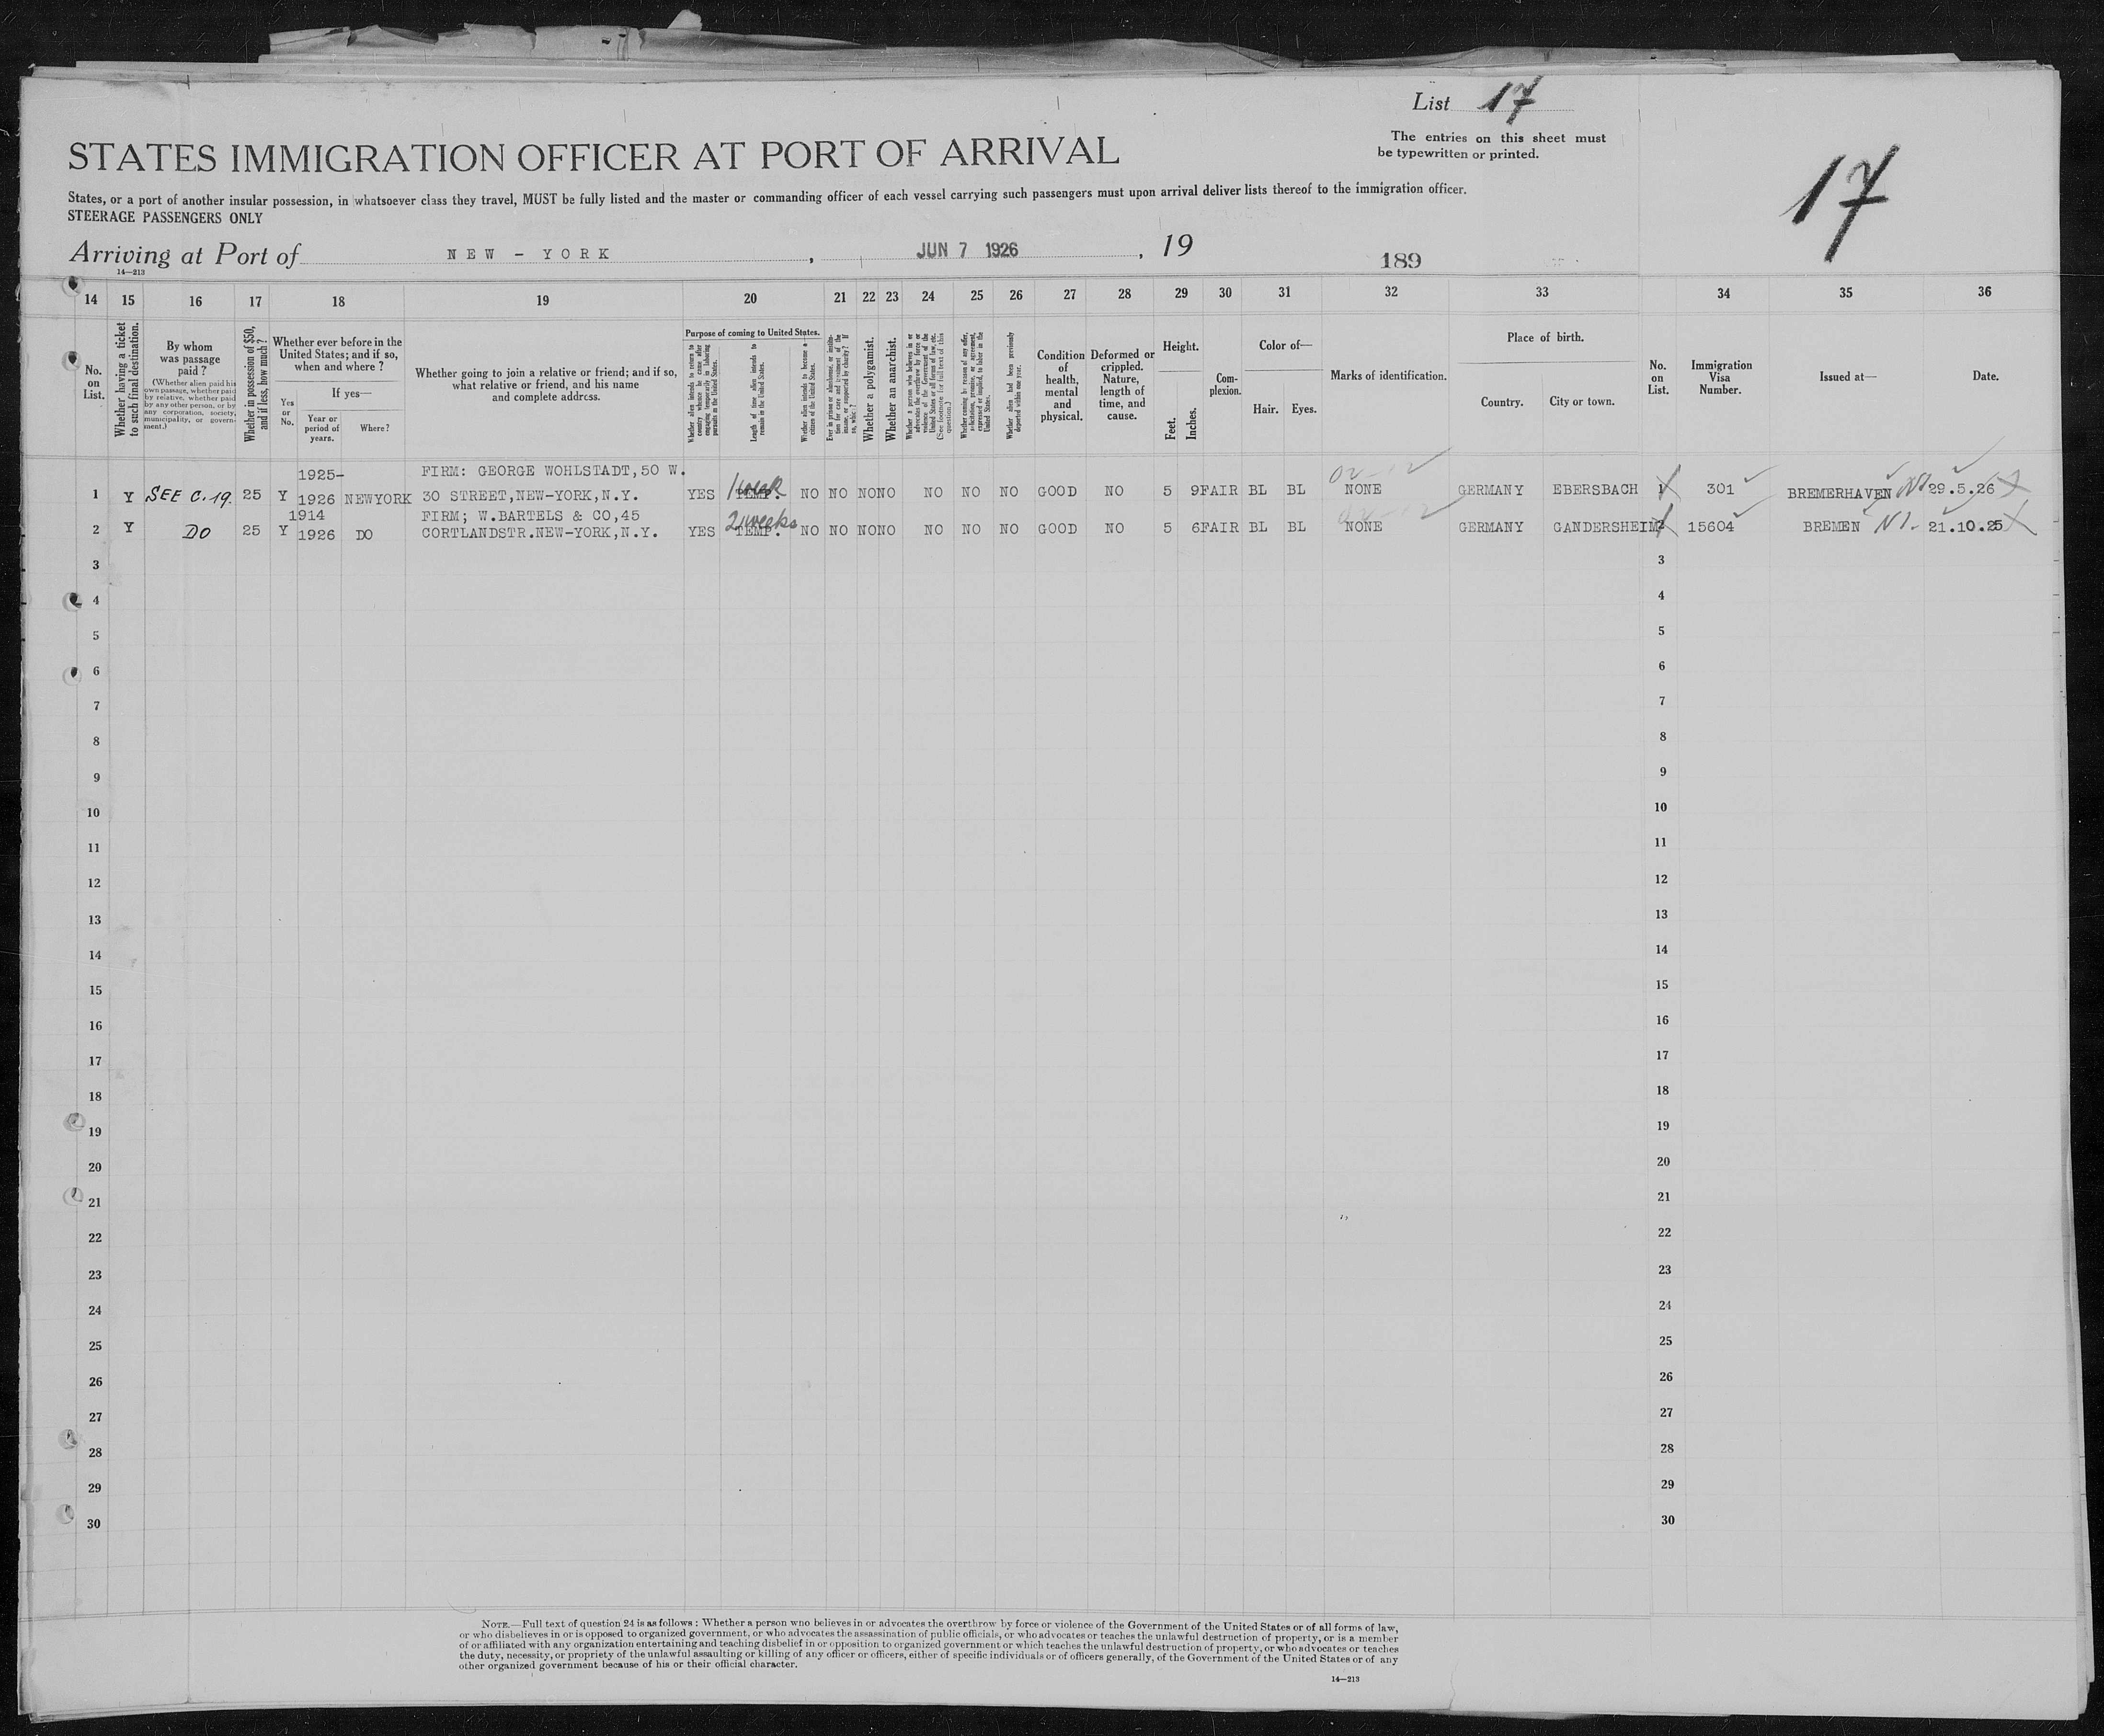 List 17
The entries on this sheet must
be typewritten or printed.
17
STATES IMMIGRATION OFFICER AT PORT OF ARRIVAL
States, or a port of another insular possession, in whatsoever class they travel, MUST be fully listed and the master or commanding officer of each vessel carrying such passengers must upon arrival deliver lists thereof to the immigration officer.
STEERAGE PASSENGERS ONLY
Arriving at Port of NEW-YORK, JUN 7 1926, 19
14—213
189
14 15 16 17 18 19 20 21 22 23 24 25 26 27 28 29 30 31 32 33 34 35 36
No. on List.
Whether having a ticket to such final destination.
By whom was passage paid?
(Whether alien paid his own passage, whether paid by relative, whether paid by any other person, or by any corporation, society, municipality, or government.)
Whether in possession of $50, and if less, how much?
Whether ever before in the United States; and if so, when and where?
Yes or No.
If yes—
Year or period of years.
Where?
Whether going to join a relative or friend; and if so, what relative or friend, and his name and complete address.
Purpose of coming to United States.
Whether alien intends to return to country whence he came after engaging temporarily in laboring pursuits in the United States.
Length of time alien intends to remain in the United States.
Whether alien intends to become a citizen of the United States.
Ever in prison or almshouse, or institution for care and treatment of the insane, or supported by charity? If so, which?
Whether a polygamist.
Whether an anarchist.
Whether a person who believes in or advocates the overthrow by force or violence of the Government of the United States or all forms of law, etc. (See footnote for full text of this question.)
Whether coming by reason of any offer, solicitation, promise, or agreement, expressed or implied, to labor in the United States.
Whether alien had been previously deported within one year.
Condition of health, mental and physical.
Deformed or crippled. Nature, length of time, and cause.
Height.
Feet.
Inches.
Complexion.
Color of—
Hair.
Eyes.
Marks of identification.
Place of birth.
Country.
City or town.
No. on List.
Immigration Visa Number.
Issued at—
Date.
1925- FIRM: GEORGE WOHLSTADT,50 W.
1 Y SEE C.19. 25 Y 1926 NEWYORK 30 STREET,NEW-YORK,N.Y. YES TEMP. 1 week NO NO NO NO NO NO NO GOOD NO 5 9 FAIR BL BL NONE GERMANY EBERSBACH 1 301 BREMERHAVEN 29.5.26
1914 FIRM; W.BARTELS & CO,45
2 Y DO 25 Y 1926 DO CORTLANDSTR.NEW-YORK,N.Y. YES TEMP. 2 weeks NO NO NO NO NO NO NO GOOD NO 5 6 FAIR BL BL NONE GERMANY GANDERSHEIM 2 15604 BREMEN 21.10.25
3 3
4 4
5 5
6 6
7 7
8 8
9 9
10 10
11 11
12 12
13 13
14 14
15 15
16 16
17 17
18 18
19 19
20 20
21 21
22 22
23 23
24 24
25 25
26 26
27 27
28 28
29 29
30 30
NOTE.—Full text of question 24 is as follows: Whether a person who believes in or advocates the overthrow by force or violence of the Government of the United States or of all forms of law,
or who disbelieves in or is opposed to organized government, or who advocates the assassination of public officials, or who advocates or teaches the unlawful destruction of property, or is a member
of or affiliated with any organization entertaining and teaching disbelief in or opposition to organized government or which teaches the unlawful destruction of property, or who advocates or teaches
the duty, necessity, or propriety of the unlawful assaulting or killing of any officer or officers, either of specific individuals or of officers generally, of the Government of the United States or of any
other organized government because of his or their official character.
14—213